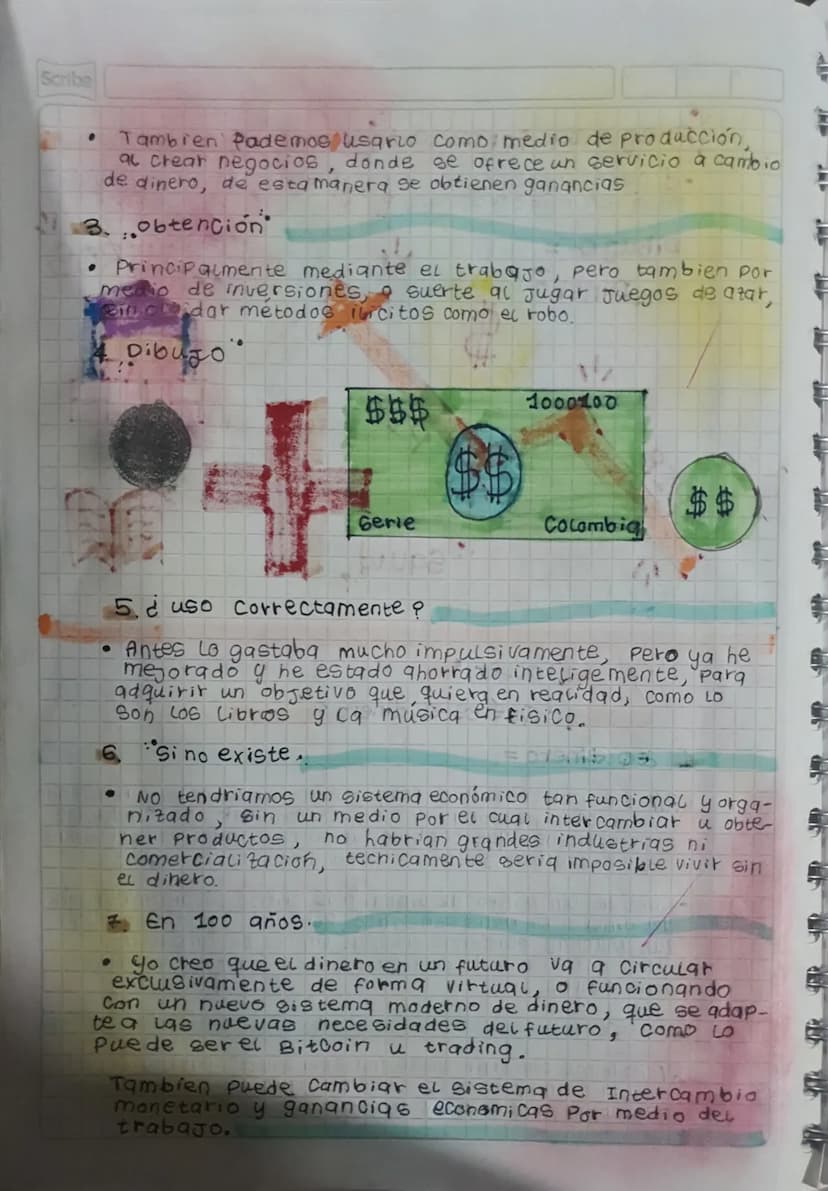 Scribe
• Tambien Pademos usarlo como medio de producción,
al crear negocios, donde se ofrece un servicio a cambio
de dinero, de esta manera se obtienen ganancias
3. "obtención"
• Principalmente mediante el trabajo, pero tambien por
medio de inversiones, o suerte al jugar juegos de azar,
sin olvidar métodos ilicitos como el robo.
4. "Dibujo"
$$$ 1000100
$$
$$
Serie Colombia
5. ¿uso correctamente?
• Antes lo gastaba mucho impulsivamente, pero ya he
mejorado y he estado ahorrado inteligemente, para
adquirir un objetivo que quiera en realidad, como lo
son los libros y la música en fisico.
6. "si no existe.
• No tendriamos un sistema económico tan funcional y orga-
nizado, sin un medio por el cual intercambiar u obte-
ner productos, no habrian grandes industrias ni
comercialización, tecnicamente seria imposible vivir sin
el dinero.
7. En 100 años.
• Yo creo que el dinero en un futuro va a circular
exclusivamente de forma virtual, o funcionando
con un nuevo sistema moderno de dinero, que se adap-
te a las nuevas necesidades del futuro, como lo
puede ser el Bitcoin u trading.
Tambien puede cambiar el sistema de Intercambio
monetario y ganancias economicas por medio del
trabajo.